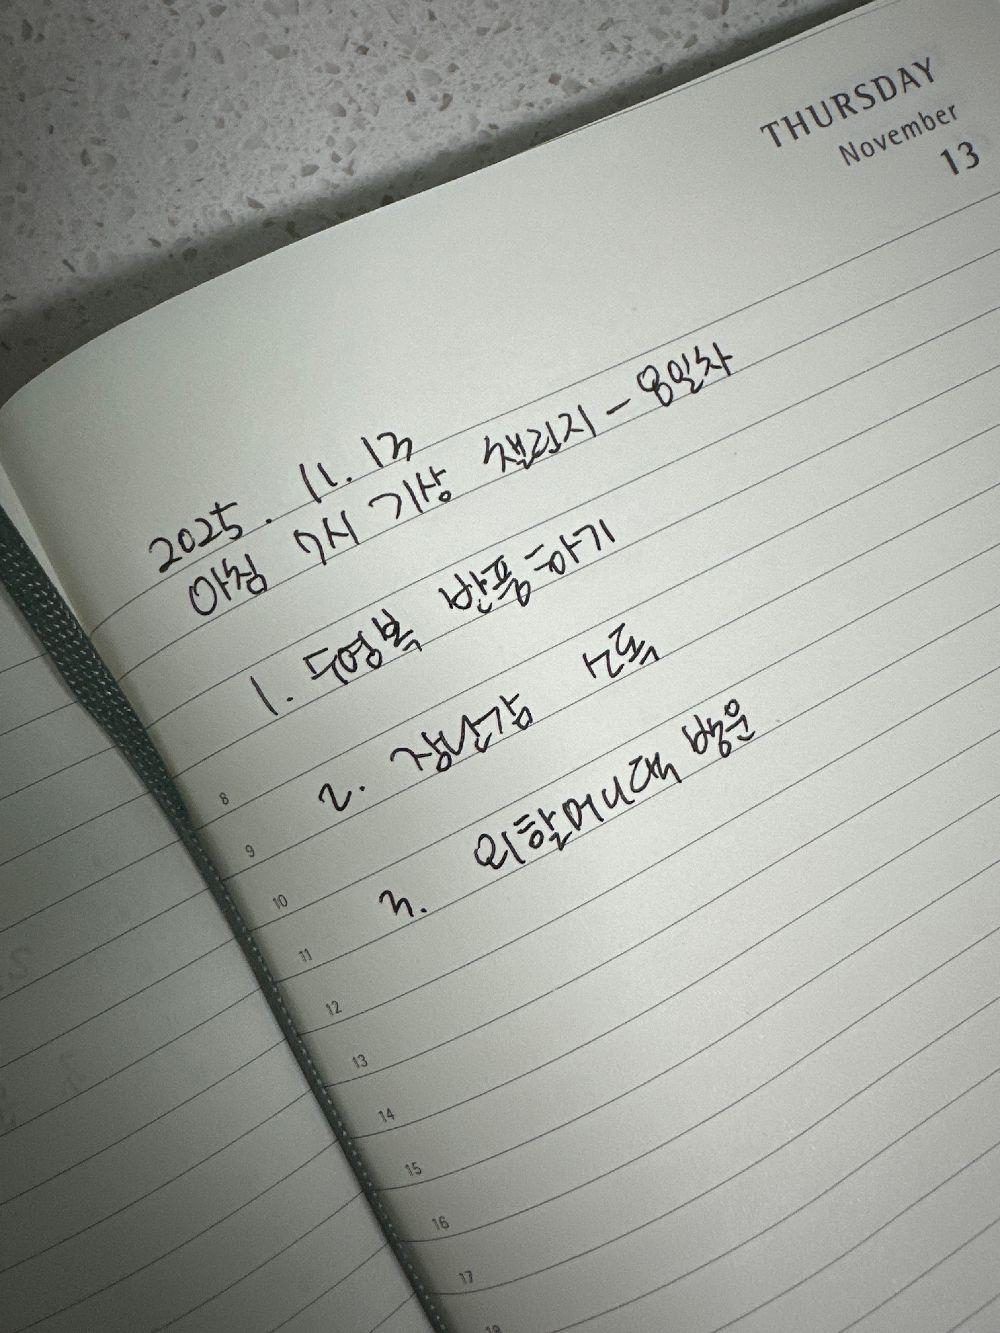 THURSDAY
November
13
2025. 11. 13
아침 7시 기상 챌린지 - 8일차
1. 수영복 반품하기
2. 장난감 소독
3. 외할머니댁 방문
8
9
10
11
12
13
14
15
16
17
18